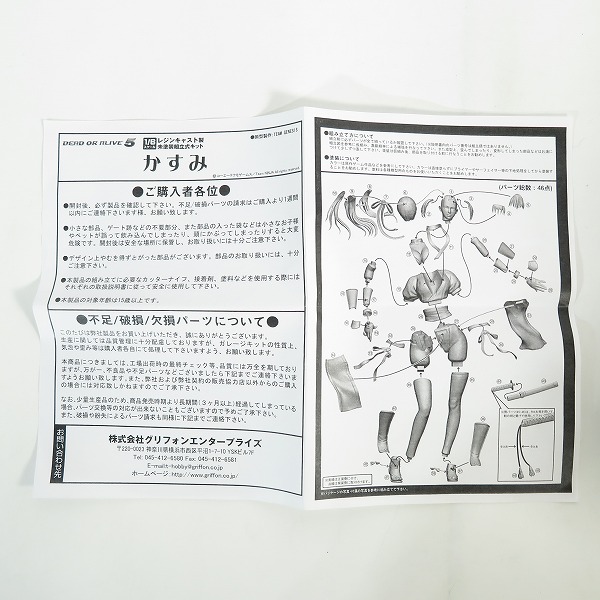 DEAD OR ALIVE 5
1/6 レジンキャスト製
未塗装組立式キット
●原型製作:TEAM GENESIS
かすみ
●ご購入者各位●
●開封後、必ず製品を確認して下さい。不足/破損パーツの請求はご購入より1週間
以内にご連絡下さいます様、お願い致します。
●小さな部品、ゲート跡などの不要部分、また部品の入った袋などは小さなお子様
やペットが誤って飲み込んでしまったり、頭にかぶってしまったりすると大変
危険です。開封後は安全な場所に保管し、お取り扱いには十分ご注意下さい。
●デザイン上やむを得ずとがった部品がございます。部品のお取り扱いには、十分
ご注意下さい。
●本製品の組み立てに必要なカッターナイフ、接着剤、塗料などを使用する際には
それぞれの取扱説明書に従って安全に使用して下さい。
●本製品の対象年齢は15歳以上です。
●不足/破損/欠損パーツについて●
このたびは弊社製品をお買い上げいただき、誠にありがとうございます。
生産に関しては品質管理に十分配慮しておりますが、ガレージキットの性質上、
気泡や歪み等は購入者各自にて処理して下さいますよう、お願い致します。
本商品につきましては、工場出荷時の最終チェック等、品質には万全を期しており
ますが、万が一、不良品や不足パーツなどございましたら下記までご連絡下さいま
すようお願い致します。また、弊社および弊社契約の販売協力店以外からのご購入
の場合には対応致しかねますのでご了承下さい。
なお、少量生産品のため、商品発売時期より長期間(3ヶ月以上)経過してしまっている
場合、パーツ交換等の対応が出来ないこともございますので予めご了承下さい。
また、破損や紛失によるパーツ請求も同様に下記までご連絡下さい。
お問い合わせ先
株式会社グリフォンエンタープライズ
〒220-0023 神奈川県横浜市西区平沼1-7-10 YSKビル7F
Tel: 045-412-6580 Fax: 045-412-6581
E-mail:t-hobby@griffon.co.jp
ホームページ:http://www.griffon.co.jp/
●組み立て方について
●塗装について
(パーツ総数:46点)